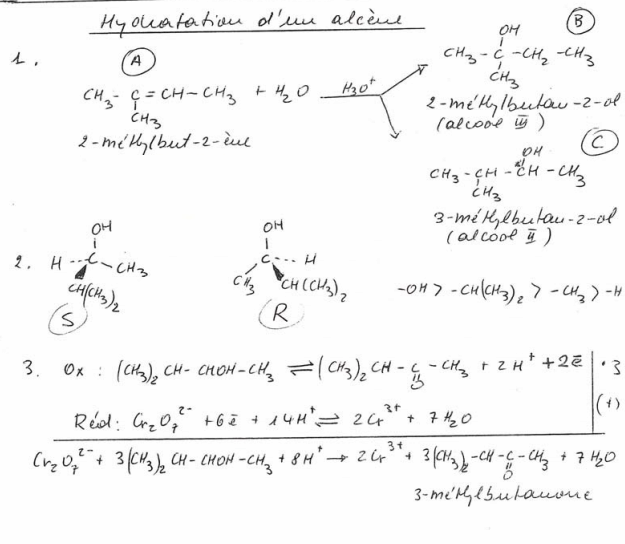 Hydratation d'un alcène
1.
A
CH3- C = CH - CH3 + H2O
CH3
H3O+
2-méthylbut-2-ène
B
OH
CH3 - C - CH2 - CH3
CH3
2-méthylbutan-2-ol
(alcool III)
C
OH
CH3 - CH - *CH - CH3
CH3
3-méthylbutan-2-ol
(alcool II)
2.
OH
H -- C - CH3
CH(CH3)2
S
OH
C --- H
CH3
CH(CH3)2
R
-OH > -CH(CH3)2 > -CH3 > -H
3. Ox : (CH3)2 CH - CHOH - CH3 ⇌ (CH3)2 CH - C - CH3 + 2H+ + 2e̅ | • 3
O
Réd : Cr2O7 2- + 6e̅ + 14H+ ⇌ 2Cr3+ + 7H2O (1)
Cr2O7 2- + 3(CH3)2 CH - CHOH - CH3 + 8H+ → 2Cr3+ + 3(CH3)2 - CH - C - CH3 + 7H2O
O
3-méthylbutanone